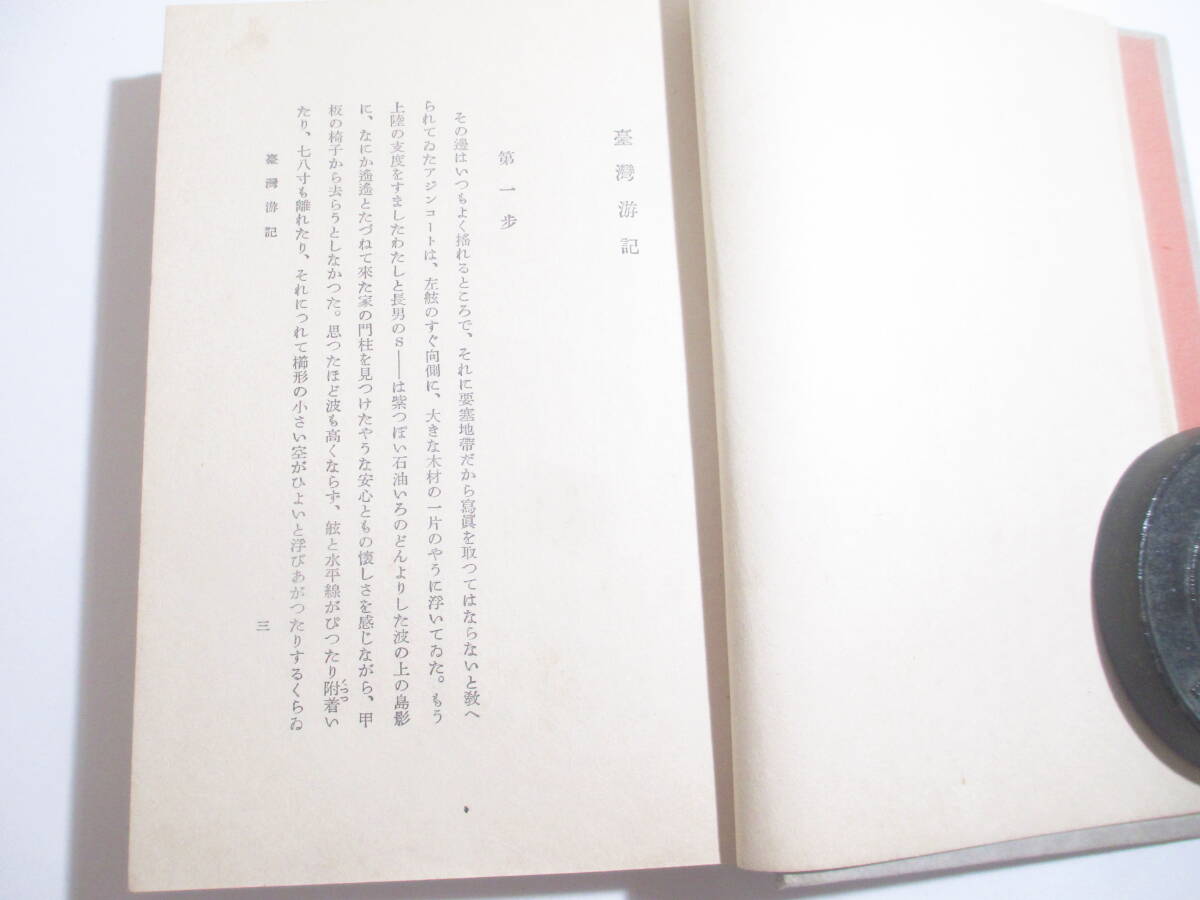 臺灣游記
第一步
その邊はいつもよく搖れるところで、それに要塞地帶だから寫眞を取つてはならないと敎へ
られてゐたアジンコートは、左舷のすぐ向側に、大きな木材の一片のやうに浮いてゐた。もう
上陸の支度をすましたわたしと長男のS――は紫つぽい石油いろのどんよりした波の上の島影
に、なにか遙遙とたづねて來た家の門柱を見つけたやうな安心ともの懷しさを感じながら、甲
板の椅子から去らうとしなかつた。思つたほど波も高くならず、舷と水平線がぴつたり附着い
くつつ
たり、七八寸も離れたり、それにつれて櫛形の小さい空がひよいと浮びあがつたりするくらゐ
臺灣游記
三